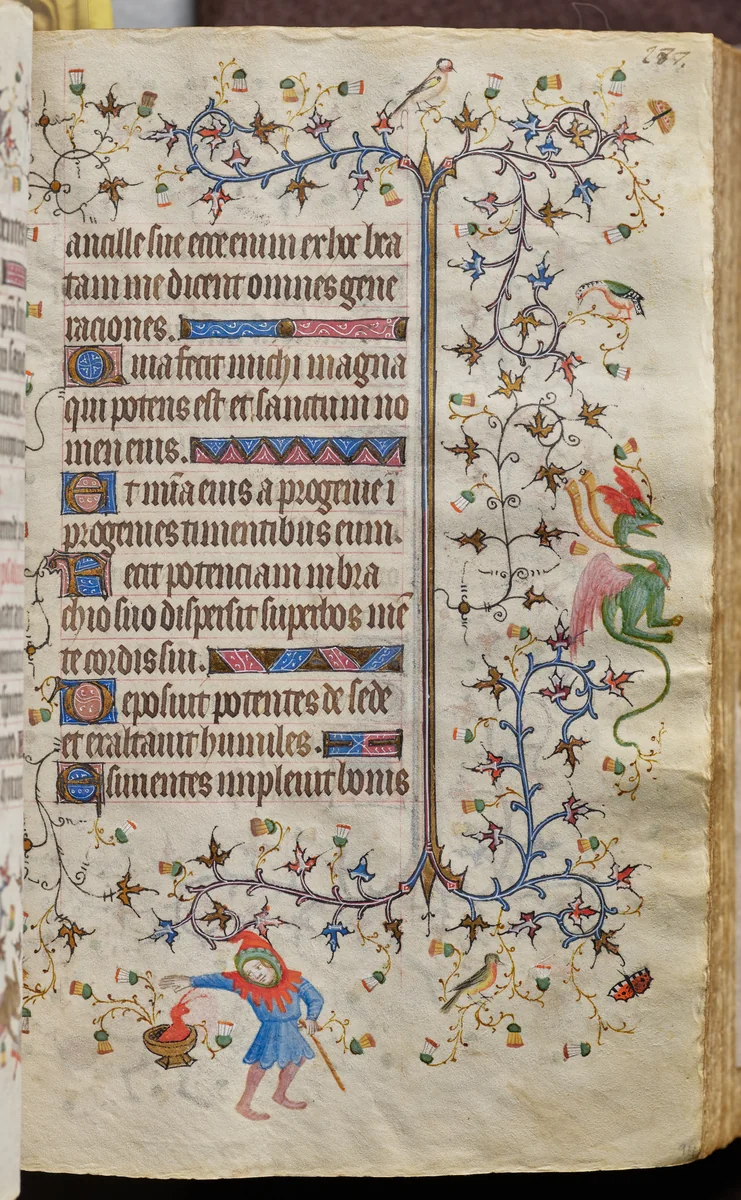 287.
ancille sue ecce enim ex hoc bea
tam me dicent omnes gene
raciones.
Quia fecit michi magna
qui potens est et sanctum no
men eius.
Et mīa eius a progenie ī
progenies timentibus eum.
Fecit potenciam in bra
chio suo dispersit superbos mē
te cordis sui.
Deposuit potentes de sede
et exaltauit humiles.
Esurientes impleuit bonis